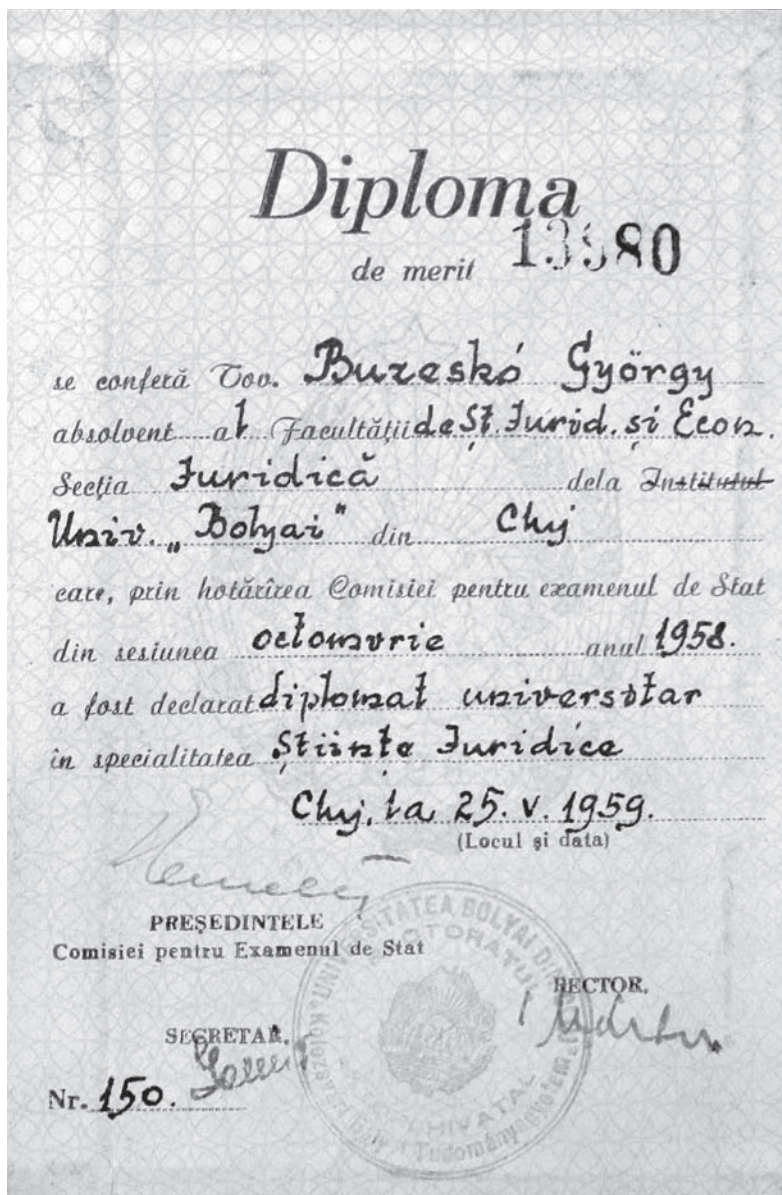 Diploma
de merit 13980
se conferă Tov. Bureskó György
absolvent al Facultății de Șt. Jurid. și Econ.
Secția Juridică dela Institutul
Univ. „Bolyai" din Cluj
care, prin hotărîrea Comisiei pentru examenul de Stat
din sesiunea octomvrie anul 1958.
a fost declarat diplomat universitar
în specialitatea Științe Juridice
Cluj, la 25. V. 1959.
(Locul și data)
PREȘEDINTELE
Comisiei pentru Examenul de Stat
RECTOR,
SECRETAR,
Nr. 150.
UNIVERSITATEA BOLYAI DIN
RECTORATUL
HIVATAL